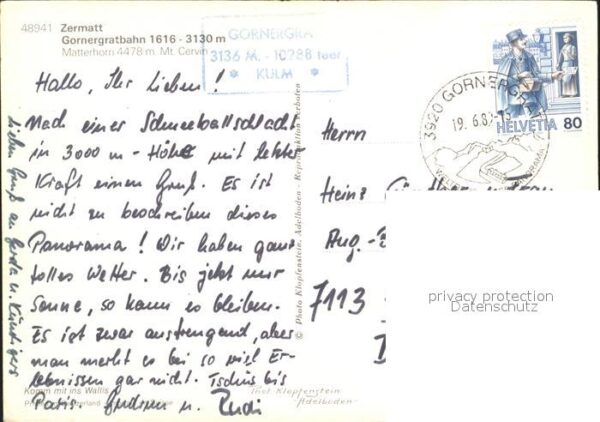 48941 Zermatt
Gornergratbahn 1616 - 3130 m
Matterhorn 4478 m Mt. Cervin
GORNERGRA
3136 M. - 10288 feet
* KULM *
HELVETIA 80
3920 GORNERGRAT
19.6.8
Hallo, Ihr Lieben!
Nach einer Schneeballschlacht
in 3000 m - Höhe mit letzter
Kraft einen Gruß. Es ist
nicht zu beschreiben dieses
Panorama! Wir haben ganz
tolles Wetter. Bis jetzt nur
Sonne, so kann es bleiben.
Es ist zwar anstrengend, aber
man merkt es bei so viel Er-
lebnissen gar nicht. Tschüs bis
Paris. Gudrun u. Rudi
Lieben Gruß an Gerda u.
Komm mit ins Wallis
© Photo Klopfenstein, Adelboden - Reproduktion verboten
Herrn
Heinz
Aug.-
7113
privacy protection
Datenschutz
Klopfenstein
-Adelboden-